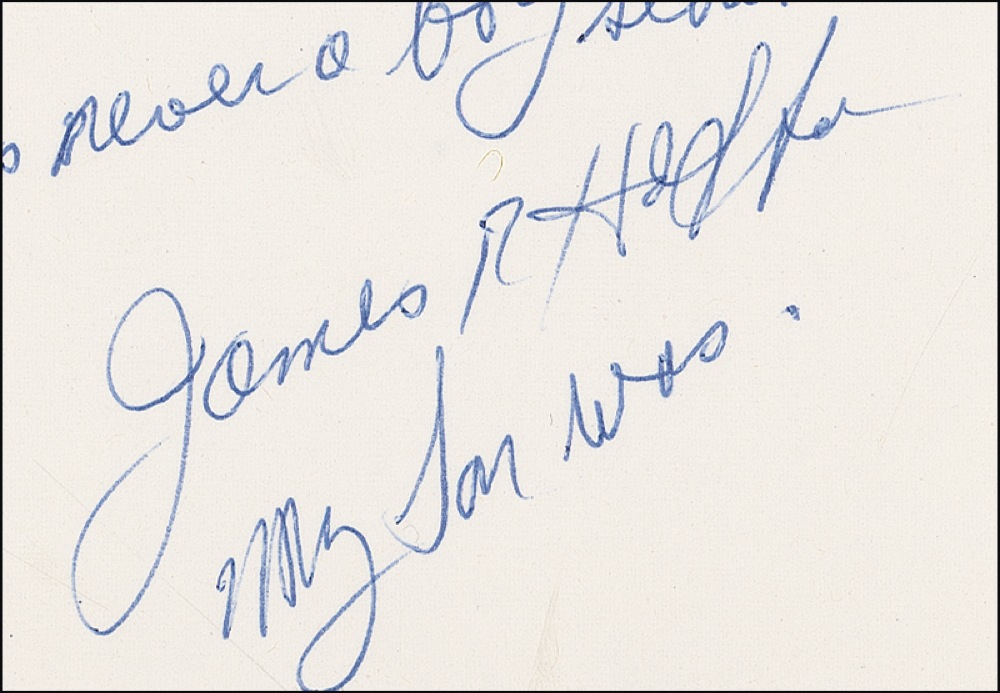 never a boy scout
James R Hoffa
My Son was.